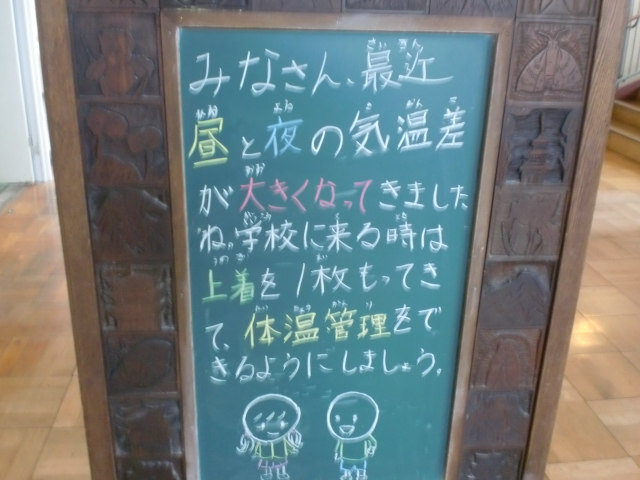 みなさん、最近
昼と夜の気温差
が大きくなってきました
ね。学校に来る時は
上着を1枚もってき
て、体温管理をで
きるようにしましょう。